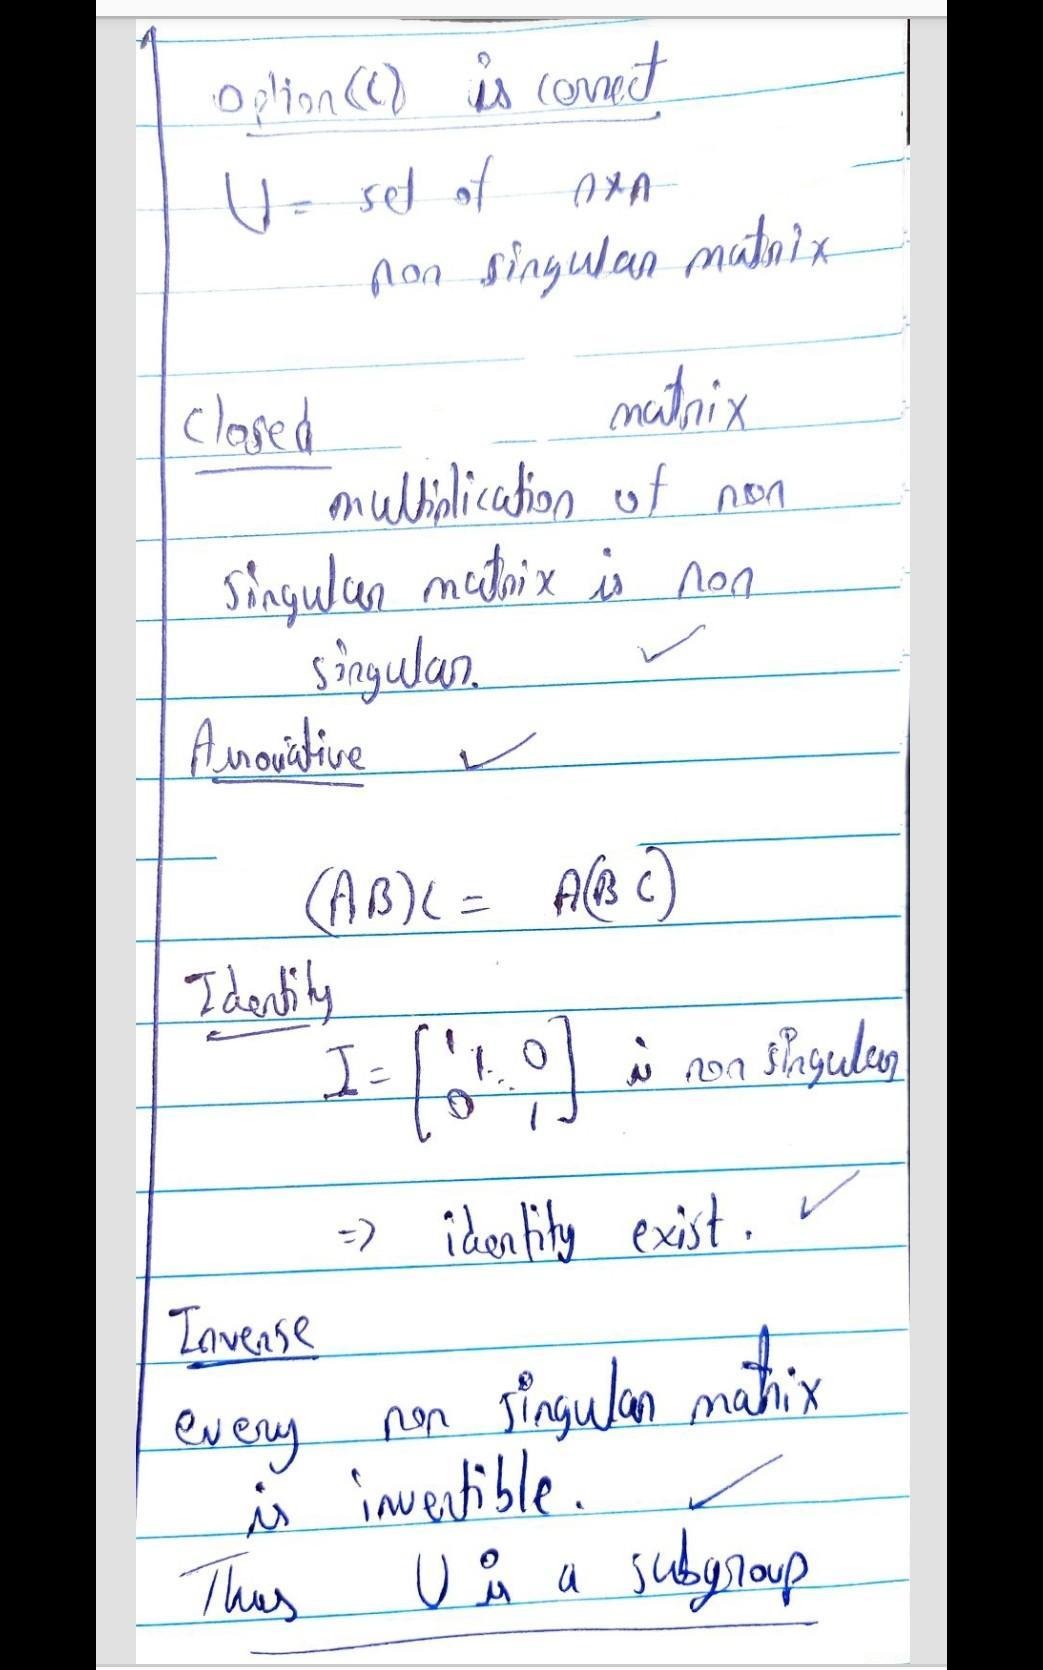 Option (C) is correct
U = set of n×n
non singular matrix
Closed matrix
multiplication of non
singular matrix is non
singular. ✓
Associative ✓
(AB)C = A(BC)
Identity
I = [1 1 ... 0 0 1] is non singular
=> identity exist. ✓
Inverse
every non singular matrix
is invertible. ✓
Thus U is a subgroup